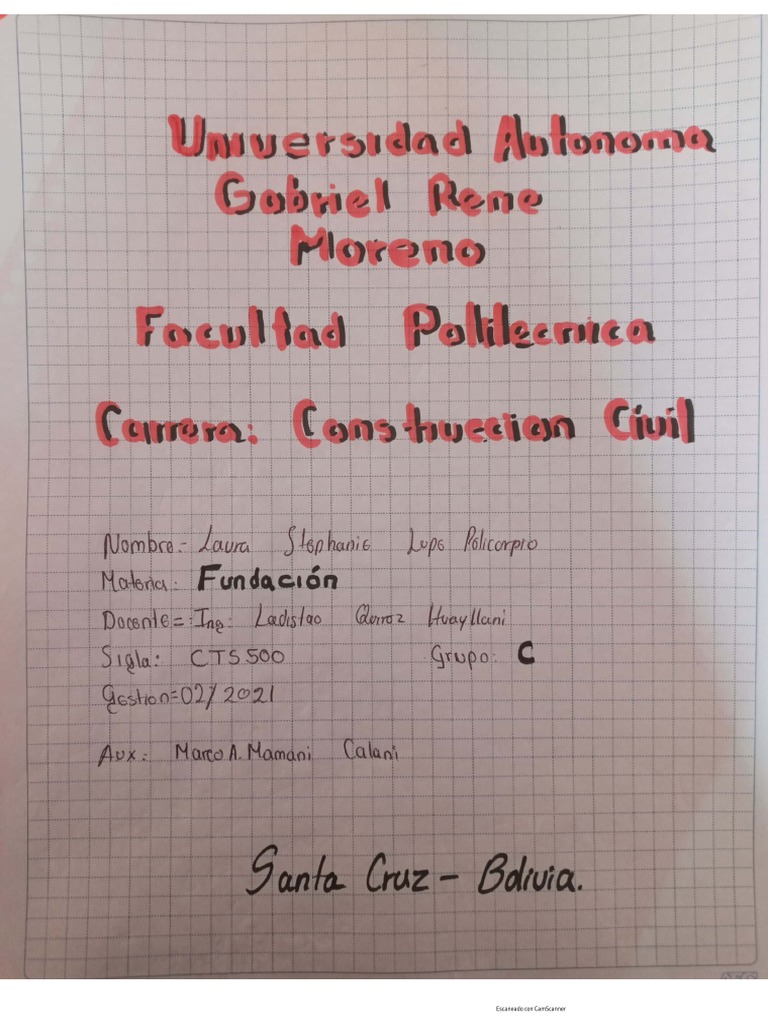 Universidad Autonoma
Gabriel Rene
Moreno
Facultad Politecnica
Carrera: Construccion Civil
Nombre:- Laura Stephanie Lupe Policarpio
Materia: Fundación
Docente=: Ing: Ladislao Quiroz Huayllani
Sigla: CTS 500 Grupo: C
Gestion=02/2021
Aux: Marco A. Mamani Calani
Santa Cruz - Bolivia.
Escaneado con CamScanner